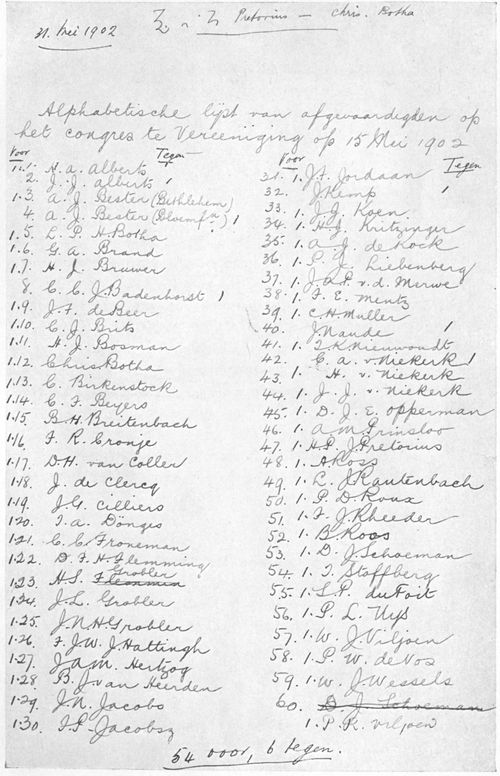 31. Mei 1902
Pretorius – Chris. Botha
Alphabetische lijst van afgevaardigden op
het congres te Vereeniging op 15 Mei 1902
Voor Tegen
1.1. H. A. Alberts
2. J. J. Alberts
1.3. A. J. Bester (Bethlehem)
4. A. J. Bester (Bloemfn) 1
1.5. L. P. H. Botha
1.6. G. A. Brand
1.7. H. J. Bruwer
8. C. C. J. Badenhorst 1
1.9. J. F. de Beer
1.10. C. J. Brits
1.11. H. J. Bosman
1.12. Chris Botha
1.13. C. Birkenstock
1.14. C. F. Beyers
1.15. B. H. Breitenbach
1.16. F. R. Cronje
1.17. D. H. van Coller
1.18. J. de Clercq
1.19. J. G. Cilliers
1.20. T. A. Dönges
1.21. C. C. Froneman
1.22. D. F. H. Flemming
1.23. H. S. Grobler
1.24. J. L. Grobler
1.25. J. N. H. Grobler
1.26. F. J. W. J. Hattingh
1.27. J. A. M. Hertzog
1.28. B. J. van Heerden
1.29. J. N. Jacobs
1.30. F. P. Jacobsz
Voor Tegen
31. 1. J. F. Jordaan
32. J. Kemp 1
33. 1. J. J. Koen.
34. 1. H. J. Kritzinger
35. 1. A. J. de Kock
36. 1. P. J. Liebenberg
37. 1. J. A. P. v. d. Merwe
38. 1. F. E. Mentz
39. 1. C. H. Muller
40. J. Naude 1
41. 1. T. K. Nieuwoudt
42. C. A. v. Niekerk 1
43. 1. H. v. Niekerk
44. 1. J. J. v. Niekerk
45. 1. D. J. E. Opperman
46. 1. A. M. Prinsloo
47. 1. H. P. J. Pretorius
48. 1. A. Ross
49. 1. L. J. Rautenbach
50. 1. P. D. Roux
51. 1. F. J. Rheeder
52. 1. B. Roos
53. 1. D. J. Schoeman
54. 1. T. Stoffberg
55. 1. S. P. du Toit
56. 1. P. L. Uys
57. 1. W. J. Viljoen
58. 1. P. W. de Vos
59. 1. W. J. Wessels
60. D. J. Schoeman
1. P. R. Viljoen
54 voor, 6 tegen.